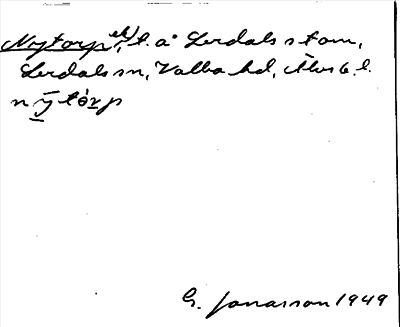 Nytorp, t. å Lerdals stom,
Lerdals sn, Valbo hd, Älvsb. l.
nȳtòrp
G. Jonasson 1949